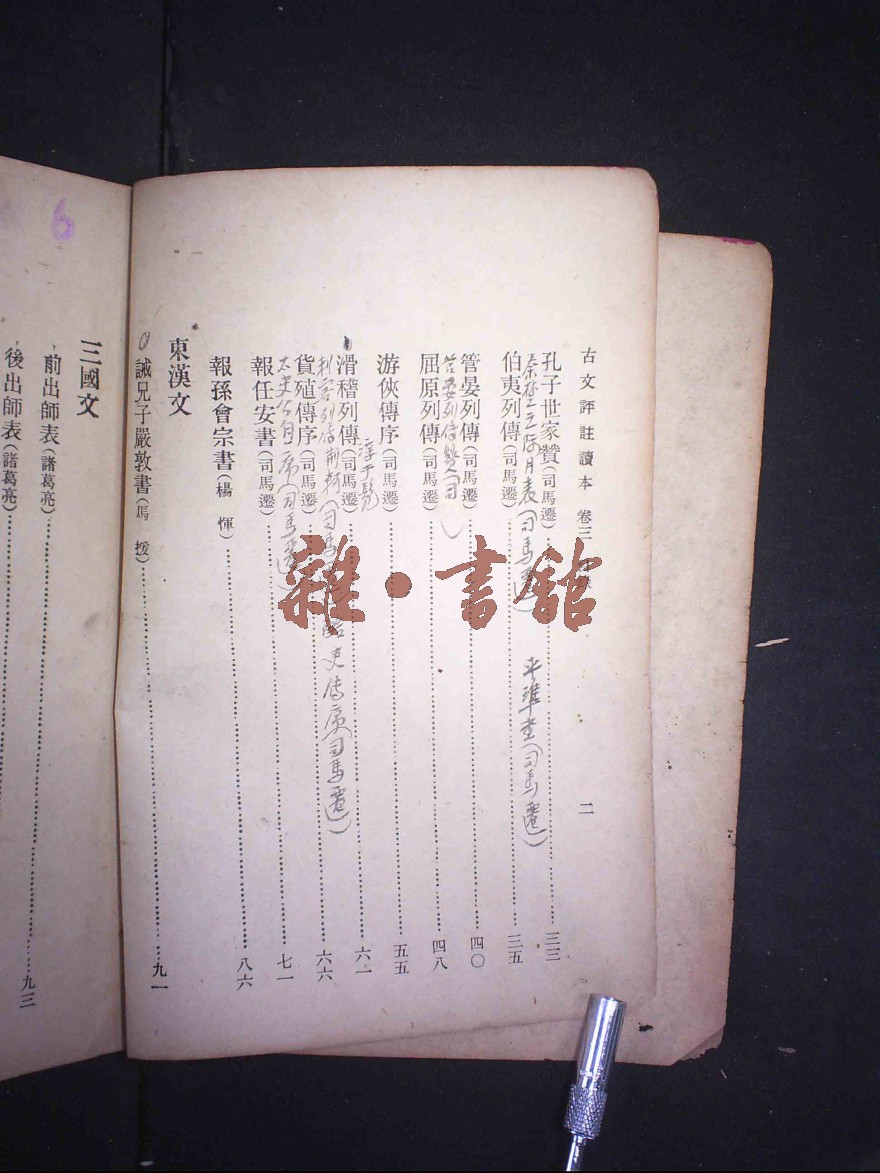 古文評註讀本 卷三 二
孔子世家贊(司馬遷)……三三
秦楚之際月表(司馬遷) 平準書(司馬遷)
伯夷列傳(司馬遷)……三五
管晏列傳(司馬遷)……四〇
管晏列傳贊(司
屈原列傳(司馬遷)……四八
游俠傳序(司馬遷)……五五
淳于髡
滑稽列傳(司馬遷)……六一
刺客列傳荊軻(司馬 酷吏傳序(司馬遷)
貨殖傳序(司馬遷)……六六
太史公自序(司馬遷)
報任安書(司馬遷)……七一
報孫會宗書(楊惲)……八六
東漢文
誡兄子嚴敦書(馬援)……九一
三國文
前出師表(諸葛亮)……九三
後出師表(諸葛亮)……
6
雜·書館